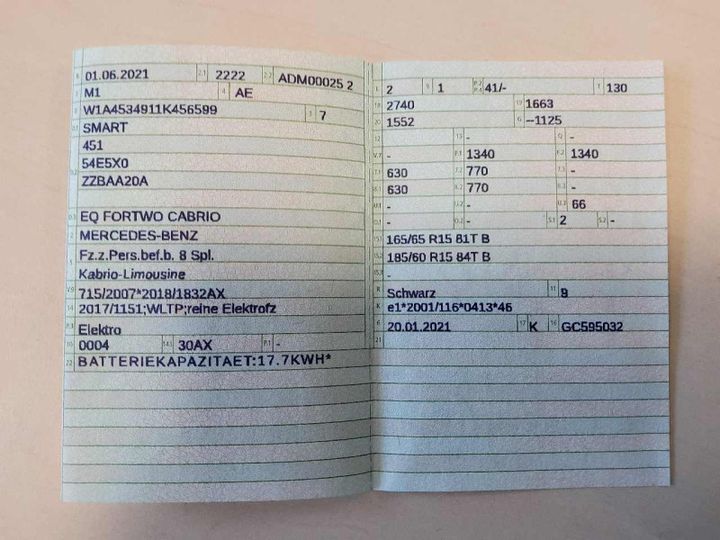 01.06.2021 2.1 2222 2.2 ADM00025 2
M1 AE
W1A4534911K456599 7
SMART
451
54E5X0
ZZBAA20A
EQ FORTWO CABRIO
MERCEDES-BENZ
Fz.z.Pers.bef.b. 8 Spl.
Kabrio-Limousine
715/2007*2018/1832AX
2017/1151;WLTP;reine Elektrofz
Elektro
0004 30AX -
22 BATTERIEKAPAZITAET:17.7KWH*
2 1 41/- 130
2740 1663
1552 --1125
- -
- 1340 1340
630 770 -
630 770 -
- - 66
- - 2 -
165/65 R15 81T B
185/60 R15 84T B
-
Schwarz 9
e1*2001/116*0413*46
20.01.2021 K GC595032
21